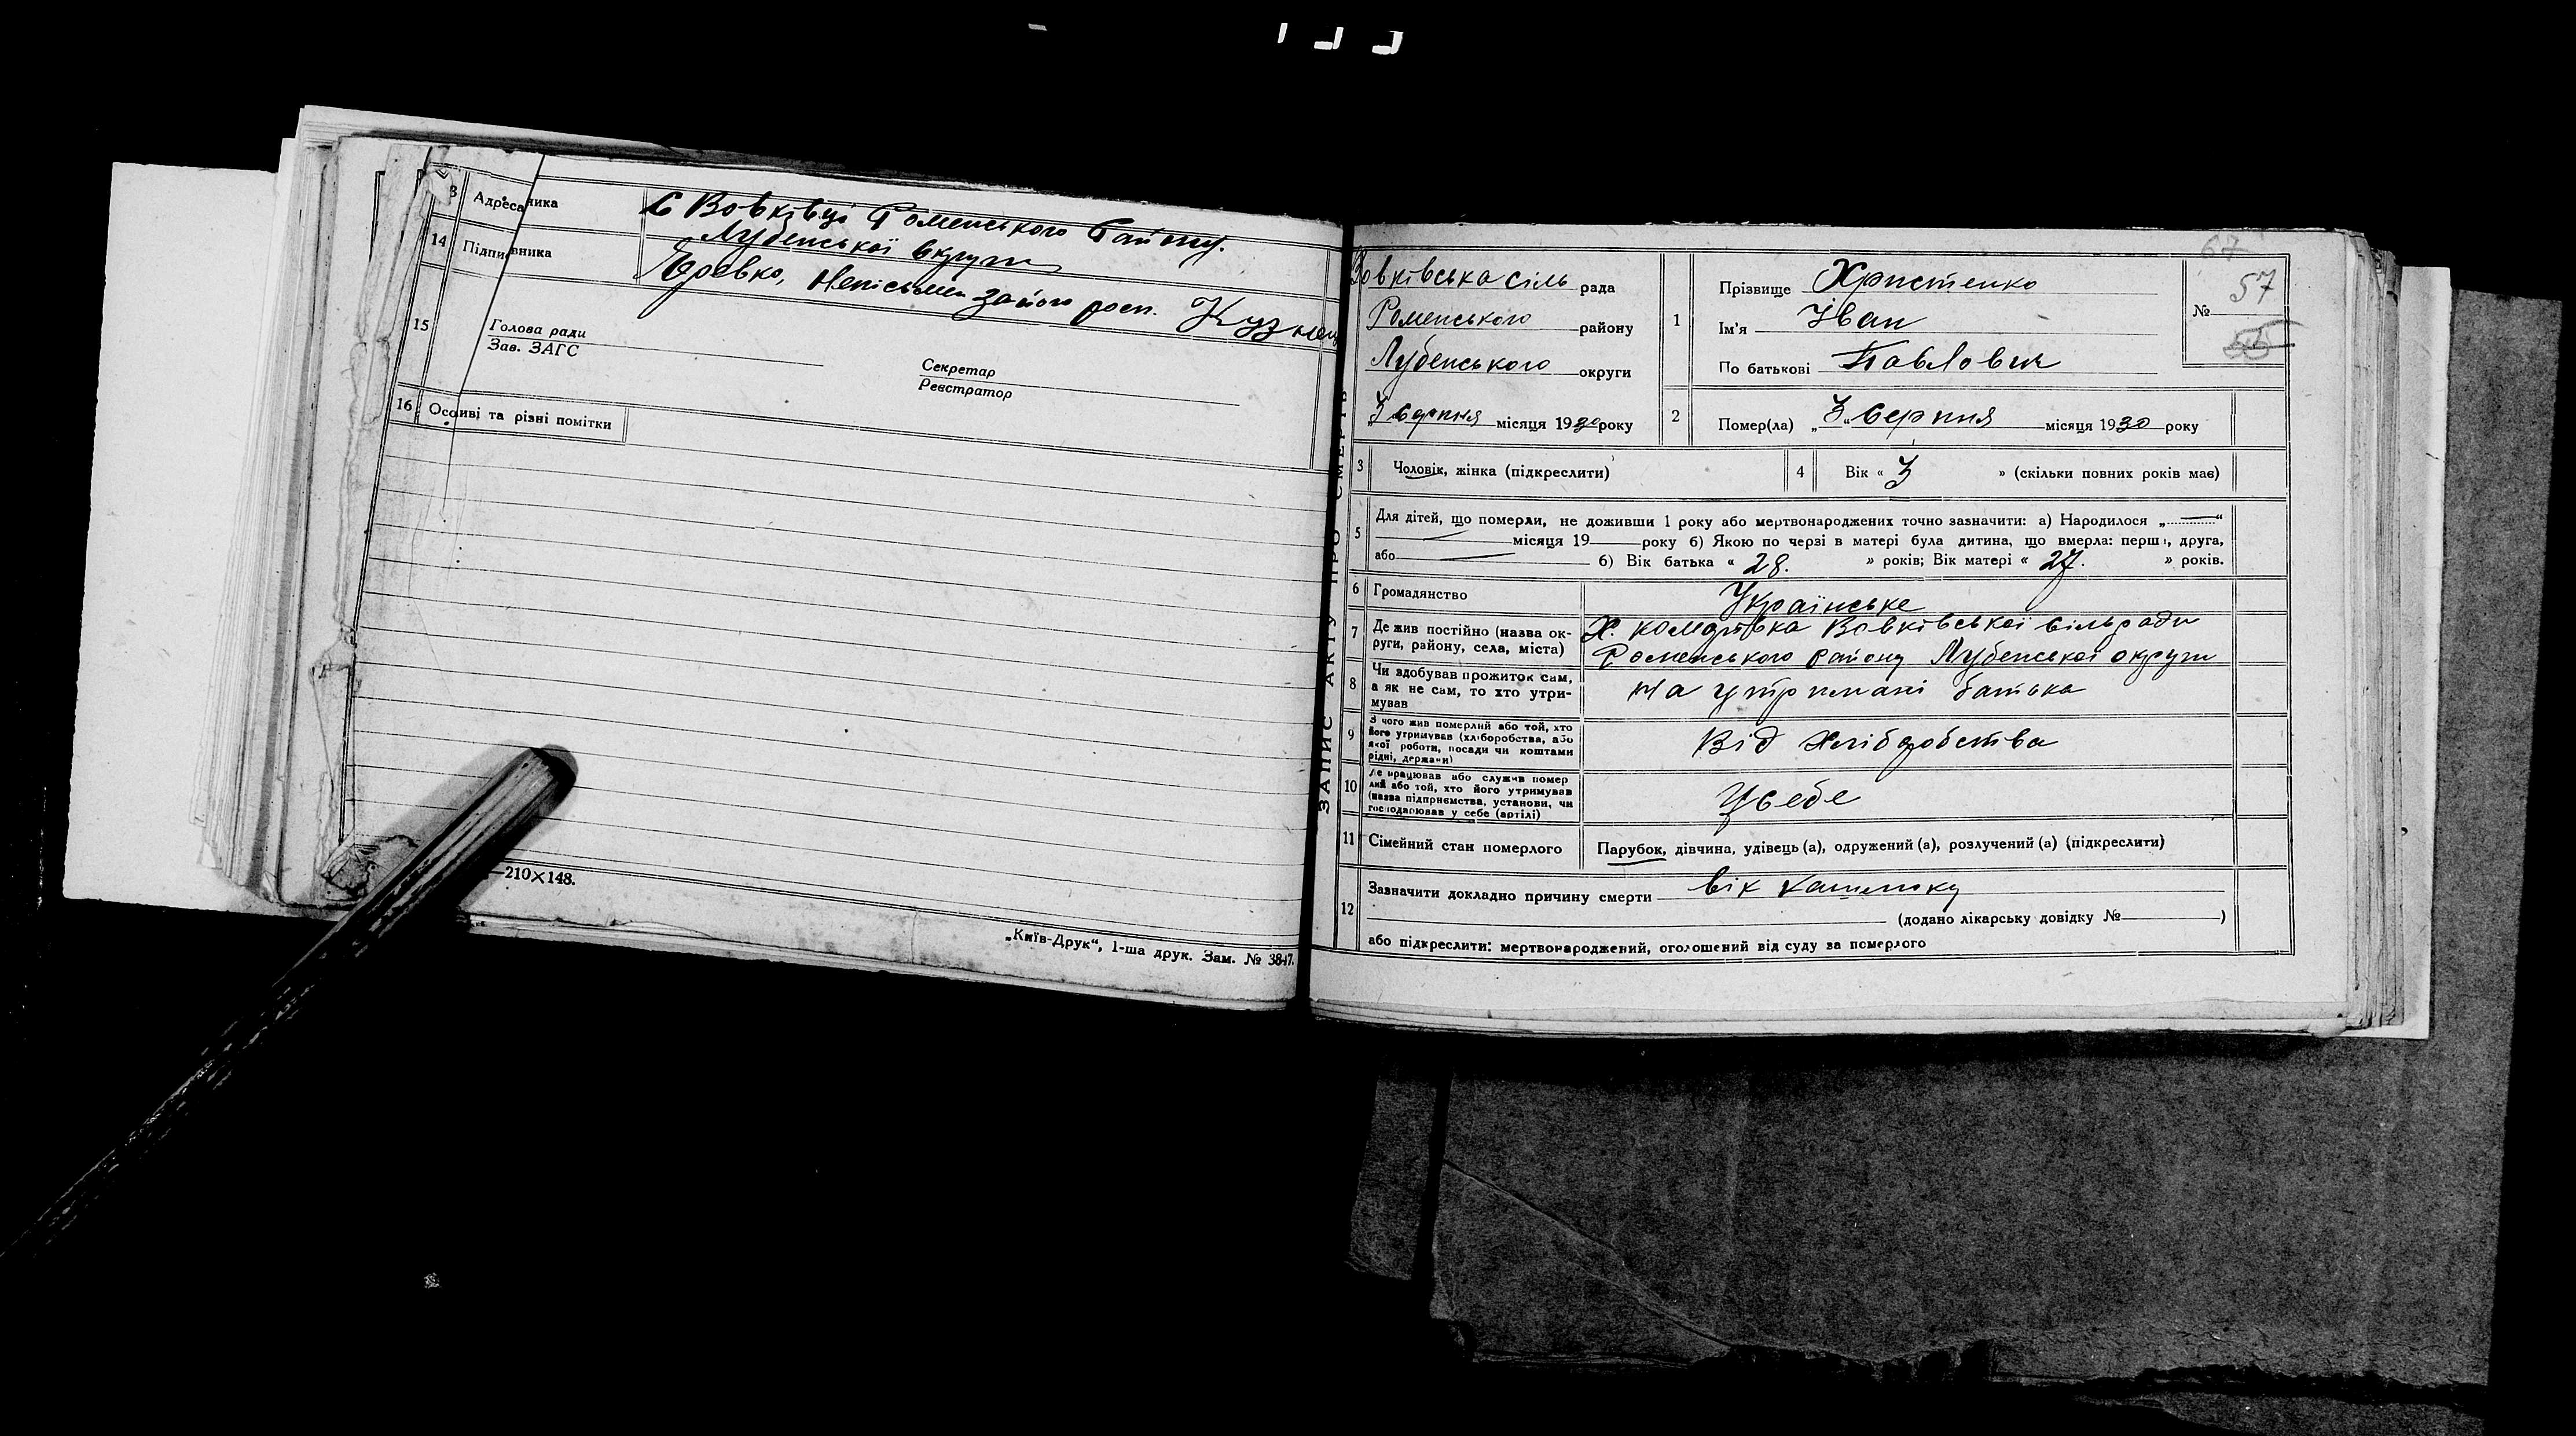 Адреса ника
С Вовківці Роменського Району.
Лубенської округи
14 Підпи вника
Яровко, Неписьмен за його росп. Кузнец
15
Голова ради
Зав. ЗАГС
Секретар
Реєстратор
16 Особливі та різні помітки
—210×148.
„Київ-Друк“, 1-ша друк. Зам. № 3847.
ЗАПИС АКТУ ПРО СМЕРТЬ
67
Вовківська сіль рада
Роменського району
Лубенського округи
„3 серпня місяця 1930 року
1
Прізвище Христенко
Ім'я Іван
По батькові Павлович
№ 57
56
2 Помер(ла) „3“ серпня місяця 1930 року
3 Чоловік, жінка (підкреслити)
4 Вік « 3 » (скільки повних років має)
5 Для дітей, що померли, не доживши 1 року або мертвонароджених точно зазначити: а) Народилося „ — “
— місяця 19 — року б) Якою по черзі в матері була дитина, що вмерла: перша, друга,
або — б) Вік батька « 28. » років; Вік матері « 27. » років.
6 Громадянство Українське
7 Де жив постійно (назва ок-
руги, району, села, міста)
Х. Вовківської сільради
Роменського району Лубенської округи
8 Чи здобував прожиток сам,
а як не сам, то хто утри-
мував
На утримані батька
9 З чого жив померлий або той, хто
його утримував (хліборобства, або
якої роботи, посади чи коштами
рідні, держави)
Від хліборобства
10 Де працював або служив помер
лий або той, хто його утримував
(назва підприємства, установи, чи
господарював у себе (артілі)
У себе
11 Сімейний стан померлого Парубок, дівчина, удівець (а), одружений (а), розлучений (а) (підкреслити)
12 Зазначити докладно причину смерти від кашлюку
(додано лікарську довідку № )
або підкреслити: мертвонароджений, оголошений від суду за померлого